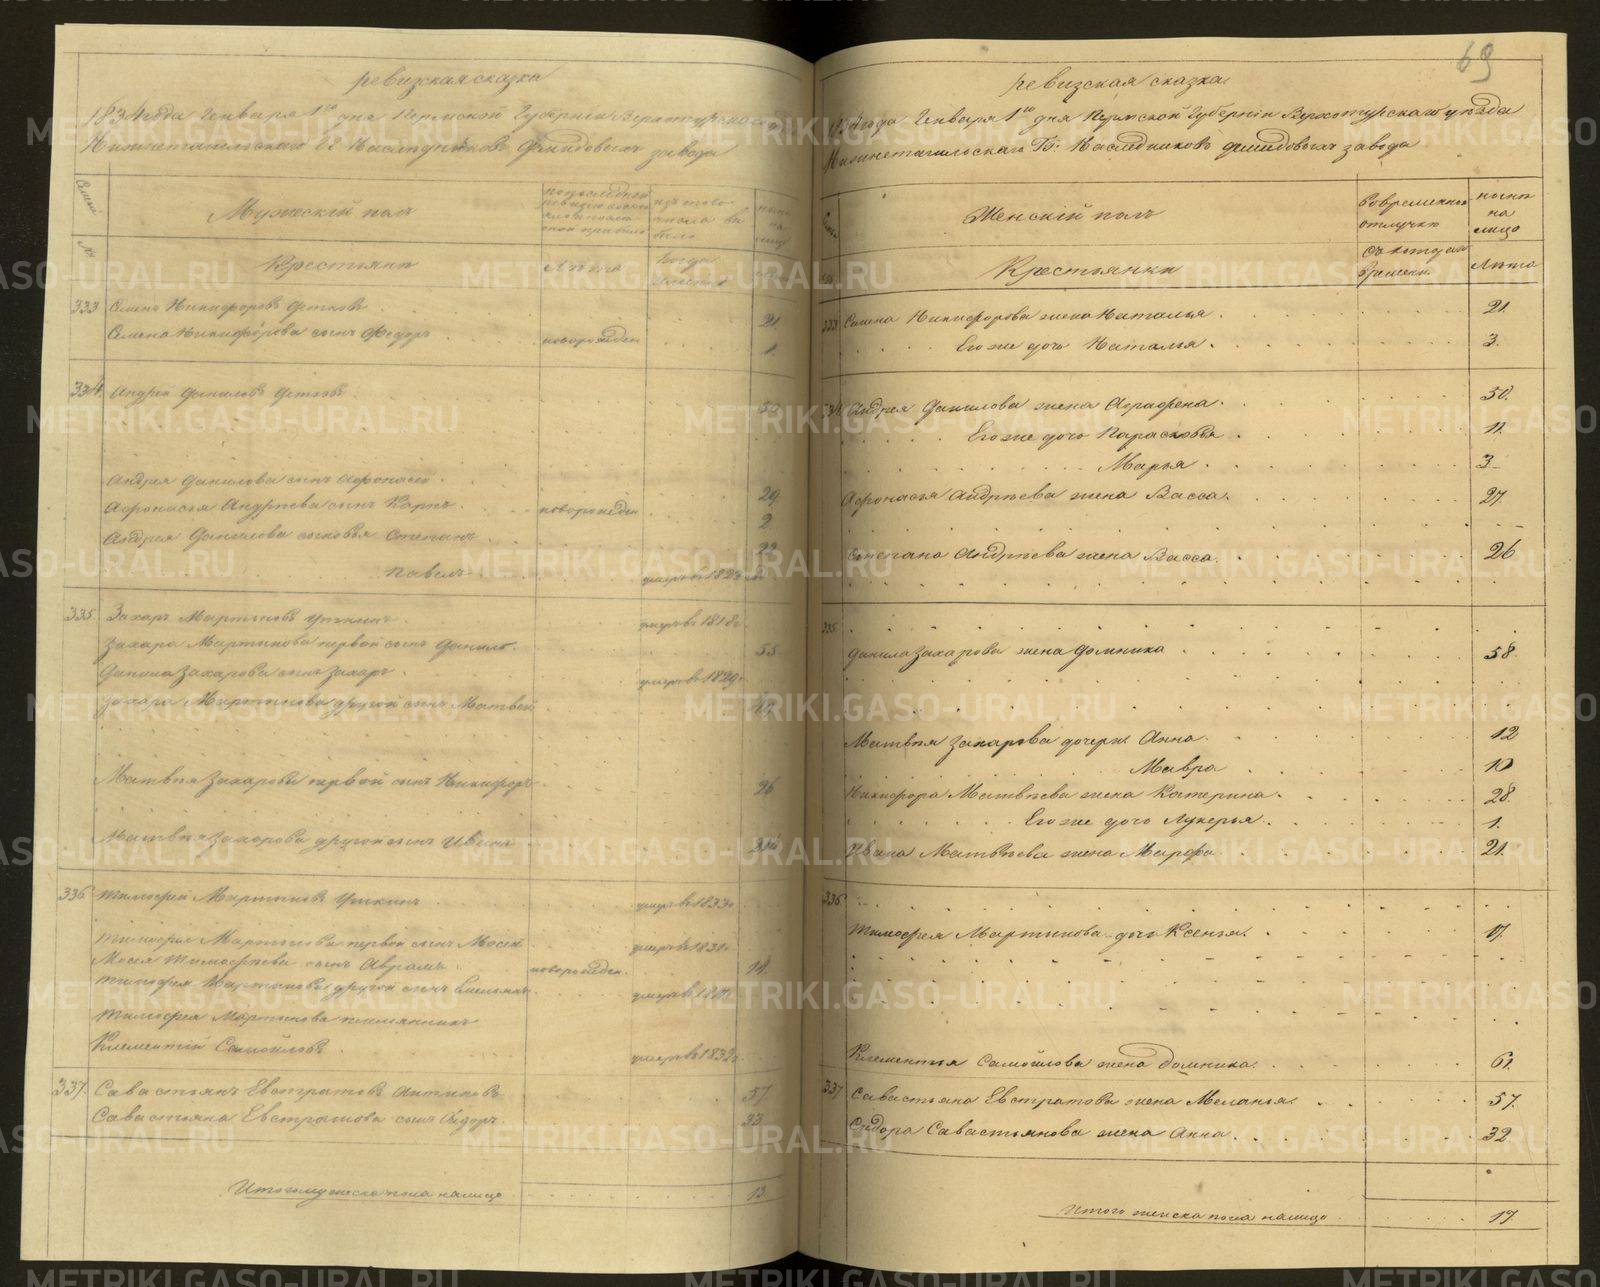 69
ревизская сказка
1834 года Генваря 1го дня Пермской Губернiи Верхотурскаго
Нижнетагильскаго Наследниковъ Демидовыхъ завода
Семьи
Мужескiй полъ
изъ того
числа вы
было
ныне
на
лицо
№
Крестьяне
Лѣта
Когда
333 Семенъ Никифоровъ 21
Семена Никифорова сынъ Федоръ новорожден 1.
334 Андрей Даниловъ 50
Андрея Данилова сынъ Афонасей 29
Афонасья Андреева сынъ Карпъ новорожден 2
Андрея Данилова сыновья Степанъ 22
Павелъ умеръ въ 182
335 Захаръ Мартыновъ умеръ въ 1818
Захара Мартынова первой сынъ Данило 55
Данила Захарова сынъ Захаръ умеръ въ 1829
Захара Мартынова другой сынъ Матвей
Матвѣя Захарова первой сынъ Никифоръ 26
Матвѣя Захарова другой сынъ Иванъ
336 Тимофей Мартыновъ умеръ въ 1833
Тимофея Мартынова первой сынъ Мосей умеръ въ 1831
Мосея Тимофеева сынъ Аврамъ новорожден.
Тимофея Мартынова другой сынъ Емельянъ умеръ въ
Тимофея Мартынова племянникъ
Клементiй Самойловъ умеръ въ 1832
337 Савастьянъ Евстратовъ Антиповъ 57
Савастьяна Евстратова сынъ Сидоръ 33
Итого мужеска пола налицо 13
ревизская сказка
1834 года Генваря 1го дня Пермской Губернiи Верхотурскаго уѣзда
Нижнетагильскаго Гг. Наследниковъ Демидовыхъ завода
Семьи
Женскiй полъ
Во временной
отлучке
ныне
на
лицо
Крестьянки
Съ котораго
времени
Лѣта
333 Семена Никифорова жена Наталья 21.
Его же дочь Наталья 3.
334 Андрея Данилова жена Аграфена 50.
Его же дочь Парасковья 11.
Марья 3
Афонасья Андреева жена Васса 27.
Степана Андреева жена Васса 26
335
Данила Захарова жена Домника 58.
Матвѣя Захарова дочери Анна 12
Мавра 10
Никифора Матвѣева жена Катерина 28.
Его же дочь Лукерья 1.
Ивана Матвѣева жена Марфа 21.
336
Тимофея Мартынова дочь Ксенья 17.
Клементья Самойлова жена Домника 61.
337 Савастьяна Евстратова жена Меланья 57.
Сидора Савастьянова жена Анна 32
Итого женска пола налицо 17
METRIKI.GASO-URAL.RU